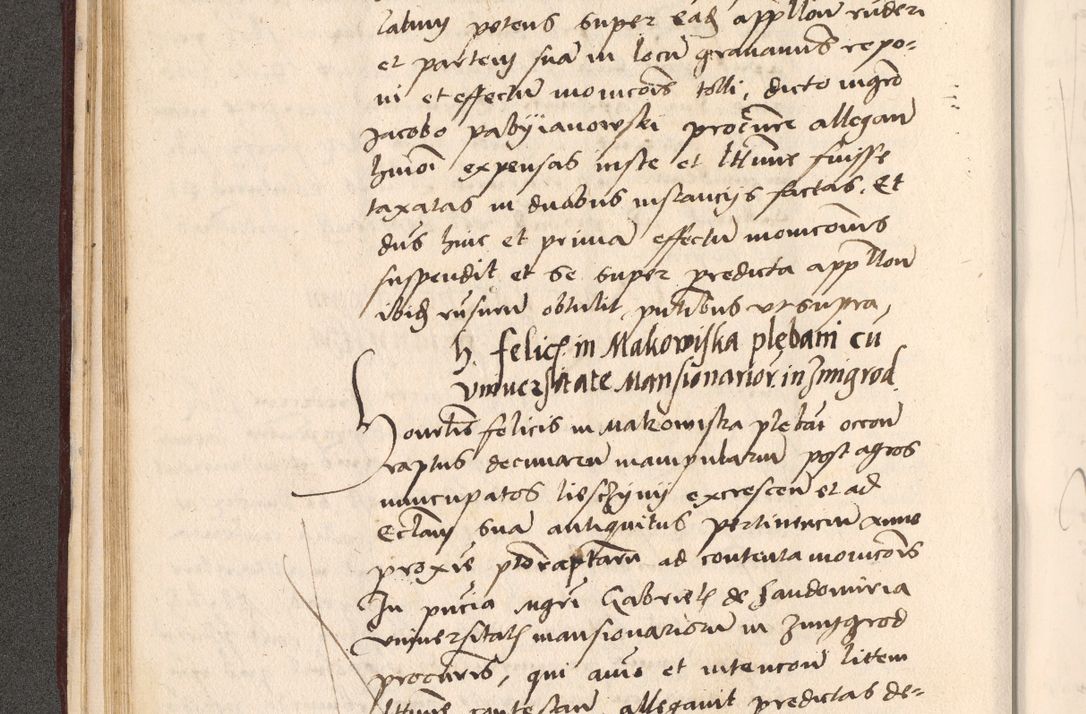 latum potens super eadem appllon ruderi
et partem sua in locu gravamis repo-
ni et effectu monicois tolli, dicto mgro
Jacobo pabyianowski procure allegan
hmoi expensas iuste et lttime fuisse
taxatas in duobus instancijs factas. Et
dus huic et prima effectu monicois
suspendit et se super predicta appllon
ibid rusuru obtulit, putibus ut supra,
h. felic. in Makowiska plebani cu
universitate Mansionarior in Zmigrod
Honestis felicis in Makowiska plebai occon
raptus decimaru manipularum post agros
nuncupatos lieschynij excrescen et ad
Ecclam sua antiquitus pertinenciu anno
proxie ptto raptaru ad contenta monicois
In pncia mgri Gabrielis de Sandomiria
universitatis mansionarioru in Zmygrod
procuris, qui auio et intencon littem
lttime contestan allegavit predictas de-